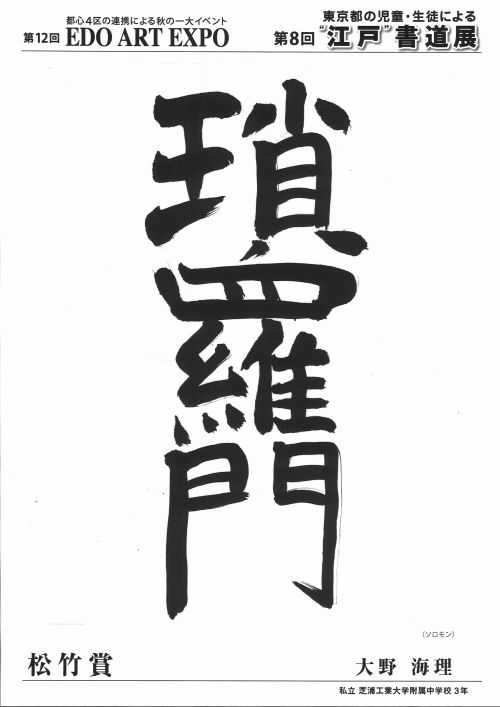 都心4区の連携による秋の一大イベント
第12回 EDO ART EXPO
東京都の児童・生徒による
第8回 “江戸”書道展
瑣羅門
（ソロモン）
松竹賞
大野 海理
私立 芝浦工業大学附属中学校 3年